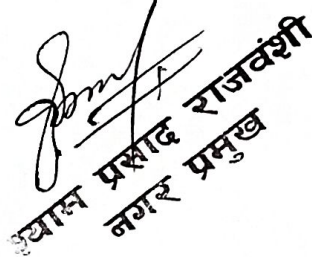 श्याम प्रसाद राजवंशी
नगर प्रमुख